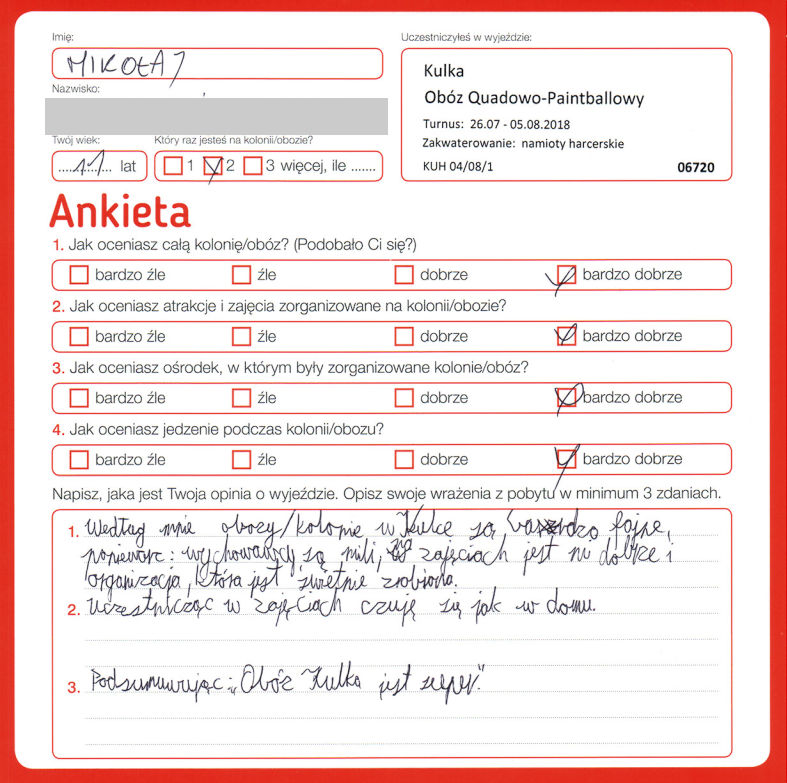 Imię:
MIKOŁAJ
Nazwisko:
Twój wiek:
Który raz jesteś na kolonii/obozie?
....11.... lat
1 2 3 więcej, ile .......
Uczestniczyłeś w wyjeździe:
Kulka
Obóz Quadowo-Paintballowy
Turnus: 26.07 - 05.08.2018
Zakwaterowanie: namioty harcerskie
KUH 04/08/1 06720
Ankieta
1. Jak oceniasz całą kolonię/obóz? (Podobało Ci się?)
bardzo źle źle dobrze bardzo dobrze
2. Jak oceniasz atrakcje i zajęcia zorganizowane na kolonii/obozie?
bardzo źle źle dobrze bardzo dobrze
3. Jak oceniasz ośrodek, w którym były zorganizowane kolonie/obóz?
bardzo źle źle dobrze bardzo dobrze
4. Jak oceniasz jedzenie podczas kolonii/obozu?
bardzo źle źle dobrze bardzo dobrze
Napisz, jaka jest Twoja opinia o wyjeździe. Opisz swoje wrażenia z pobytu w minimum 3 zdaniach.
1. Według mnie obozy/kolonie w Kulce są bardzo fajne,
ponieważ: wychowawcy są mili, na zajęciach jest mi dobrze i
organizacja, która jest świetnie zrobiona.
2. Uczestnicząc w zajęciach czuję się jak w domu.
3. Podsumuwując: „Obóz Kulka jest super."